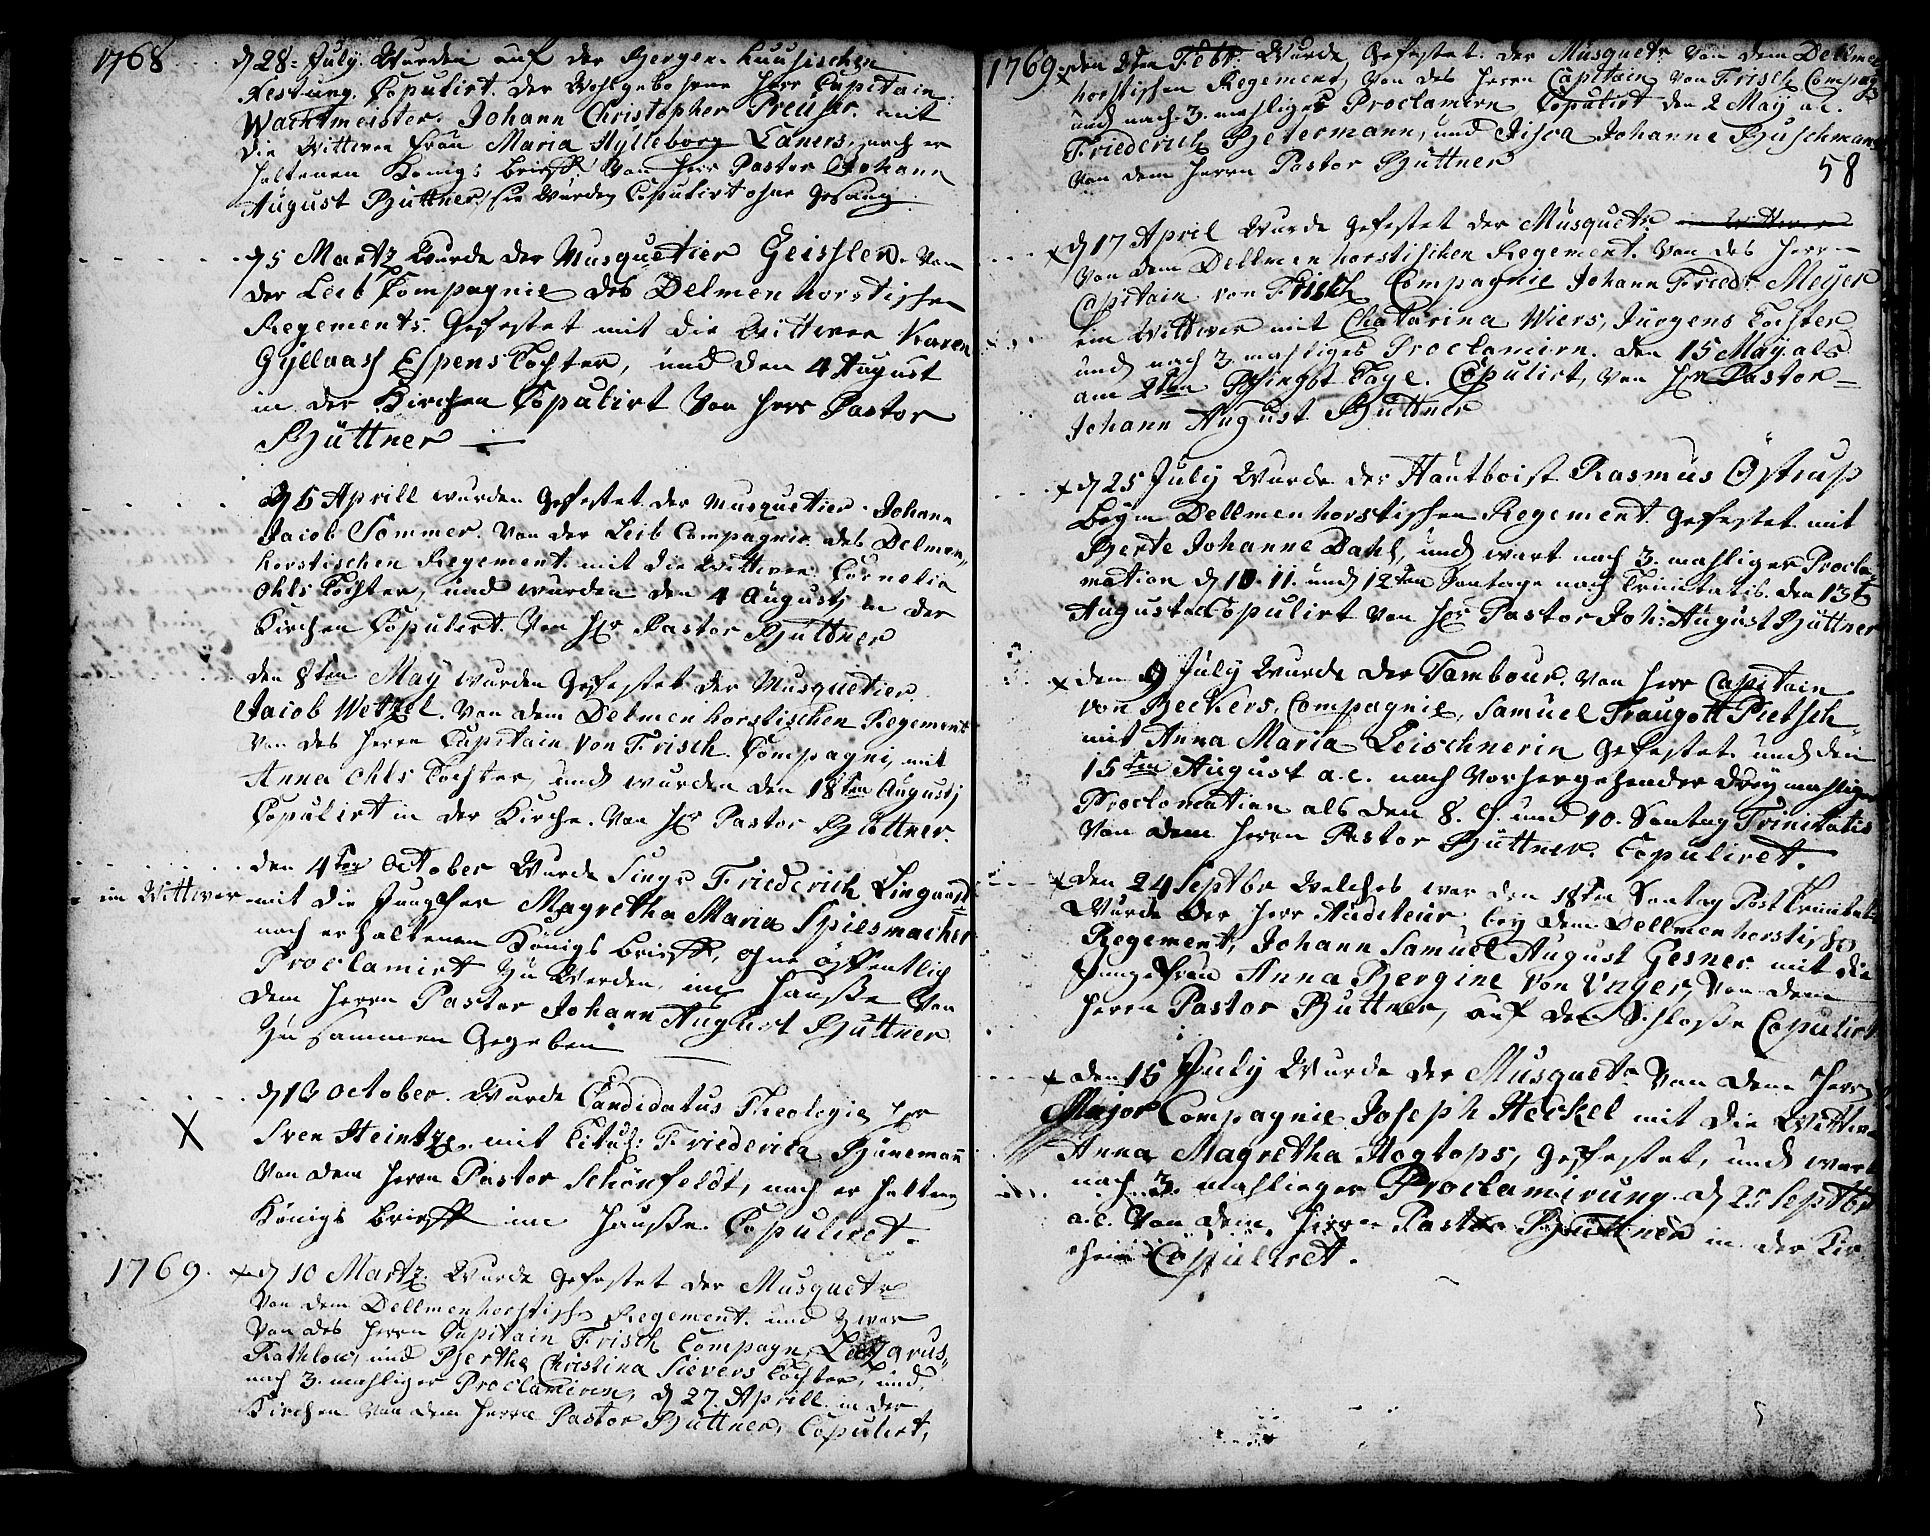 1768
d 28. July. Wurden auf der Bergen-huusischen
Festung. Copulirt. der Wohlgebohrne Herr Capitain
Wachtmeister. Johann Christopher Preuser. mit
die Wittwe Frau Maria Hylleborg Laners, nach er
haltenen Königs brieff. Von Herr Pastor Johann
August Büttner, sie wurden Copulirt ohne Gesang.
d 5 Martz Wurde der Musquetier Geissler. Von
der Leib Compagnie des Delmenhorstischen
Regements. Gefestet mit die Wittwe Karen
Gyllaass Espens Tochter, und den 4 August
in der Kirchen Copulirt Von Herr Pastor
Büttner
d 6 Aprill wurden Gefestet der Musquetier. Johann
Jacob Sommer. Von der Leib Compagnie des Delmen-
horstischen Regement. mit die Wittwe Cornelia
Ohls Tochter, und wurden den 4 Augustj in der
Kirchen Copulirt. Von Hr Pastor Büttner
den 8ten May wurden Gefestet der Musquetier.
Jacob Wetzel. Von dem Delmenhorstischen Regement
Von des Herrn Capitain Von Frisch. Compagni, mit
Anna Ohls Tochter, und wurden den 18ten Augustj
Copulirt in der Kirche. Von Hr Pastor Büttner.
den 4ten October Wurde Sings Friederich Lingaas
im Wittwer mit die Jungfer Magretha Maria Spiesmacher
nach erhaltenen Königs brieff, ohne öffentlich
Proclamirt zu Werden, im Hausse Von
dem Herrn Pastor Johann August Büttner
Zusammen Gegeben
d 10 October. Wurde Candidatus Theologie Hr
X
Sven Heintze. mit Titul: Friederica Bünemann
Von dem Herrn Pastor Schönfeldt, nach erhaltung
Königs brieff im Hausse. Copuliret.
1769. x d 10 Martz. Wurde Gefestet der Musquetr
Von dem Dellmenhorstischen Regement. und zwar
Von des Herrn Capitain Frisch Compagn, Lazarus
Rathlow, und Berthe Christina Sievers Tochter, und,
nach 3. mahliger Proclamiren, d 27. Aprill in der
Kirchen Von dem Herrn Pastor Büttner, Copulirt,
1769 x den 2ten Febr. Wurde Gefestet. der Musquetr. Von dem Dellmen
horstischen Regement, Von des Herrn Capitain von Frisch Compag
und nach 3. mahliges Proclamirn Copulirt den 2 May a.c.
Friederich Betermann, und Johanne Buschmann
Von dem Herrn Pastor Büttner
58
x d 17 April Wurde Gefestet der Musquetr. Wittwer
Von dem Dellmenhorstischen Regement. Von des Herrn
Capitain von Frisch Compagnie Johann Friedr. Meyer
ein Wittwer mit Chatarina Wiers, Jurgens Tochter
und nach 3. mahliges Proclamirn. den 15 May. als
am 2ten Pfingst Tage. Copulirt, Von Hr Pastor
Johann August Büttner
x d 25 July Wurde der Hautboist Rasmus Östrup
beym Dellmenhorstischen Regement. Gefestet mit
Berte Johanne Dahl, und wart nach 3. mahliger Procla-
mation d 10. 11. und 12ten Sontage nach Trinitatis. den 13t
Augusta Copulirt Von Hr Pastor Joh: August Büttner
x den 9 July Wurde der Tambour. Von Herr Capitain
von Beckers, Compagnie, Samuel Traugott Pietsch
mit Anna Maria Leischnerin Gefestet. und den
15ten August a.c. nach Vorhergehender dreymahliger
Proclomation als den 8. 9. und 10. Sontag Trinitatis
Von dem Herrn Pastor Büttner. Copuliret.
x den 24 Septbr Welches war den 18ten Sontag Post Trinitat
Wurde der Herr Auditeur bey dem Dellmenhorstischen
Regement, Johann Samuel August Gesner. mit die
Jungefrau Anna Bergine Von Unger, Von dem
Herrn Pastor Buttner, auf den Schlosse Copulirt
x den 15 July Wurde der Musquetr Von dem Herrn
Major Compagnie Joseph Heckel mit die Wittwe
Anna Magretha Hogtops, Gefestet, und wart
nach 3 mahlieger Proclamirung. d 25 Septbr
a.c. Von dem Herrn Pastor Büttner in der Kir
chen Copuliret.